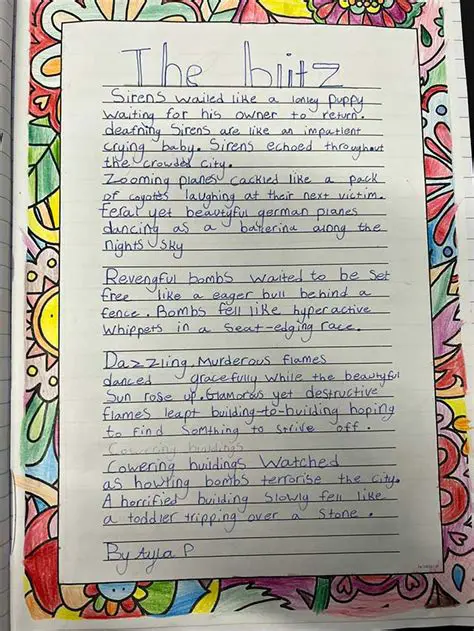 The blitz
Sirens wailed like a lonley puppy
waiting for his owner to return.
deafning Sirens are like an impatient
crying baby. Sirens echoed throughout
the crowded city.
Zooming planes cackled like a pack
of coyotes laughing at their next victim.
feral yet beautyful german planes
dancing as a ballerina along the
nights sky
Revengful bombs waited to be set
free like a eager bull behind a
fence. Bombs fell like hyperactive
whippets in a seat-edging race.
Dazzling, Murderous flames
danced gracefully while the beautyful
Sun rose up. Glamorous yet destructive
flames leapt building-to-building hoping
to find somthing to strive off.
Cowering buildings
Cowering buildings watched
as howling bombs terrorise the city.
A horrified building slowly fell like
a toddler tripping over a stone.
By Ayla P